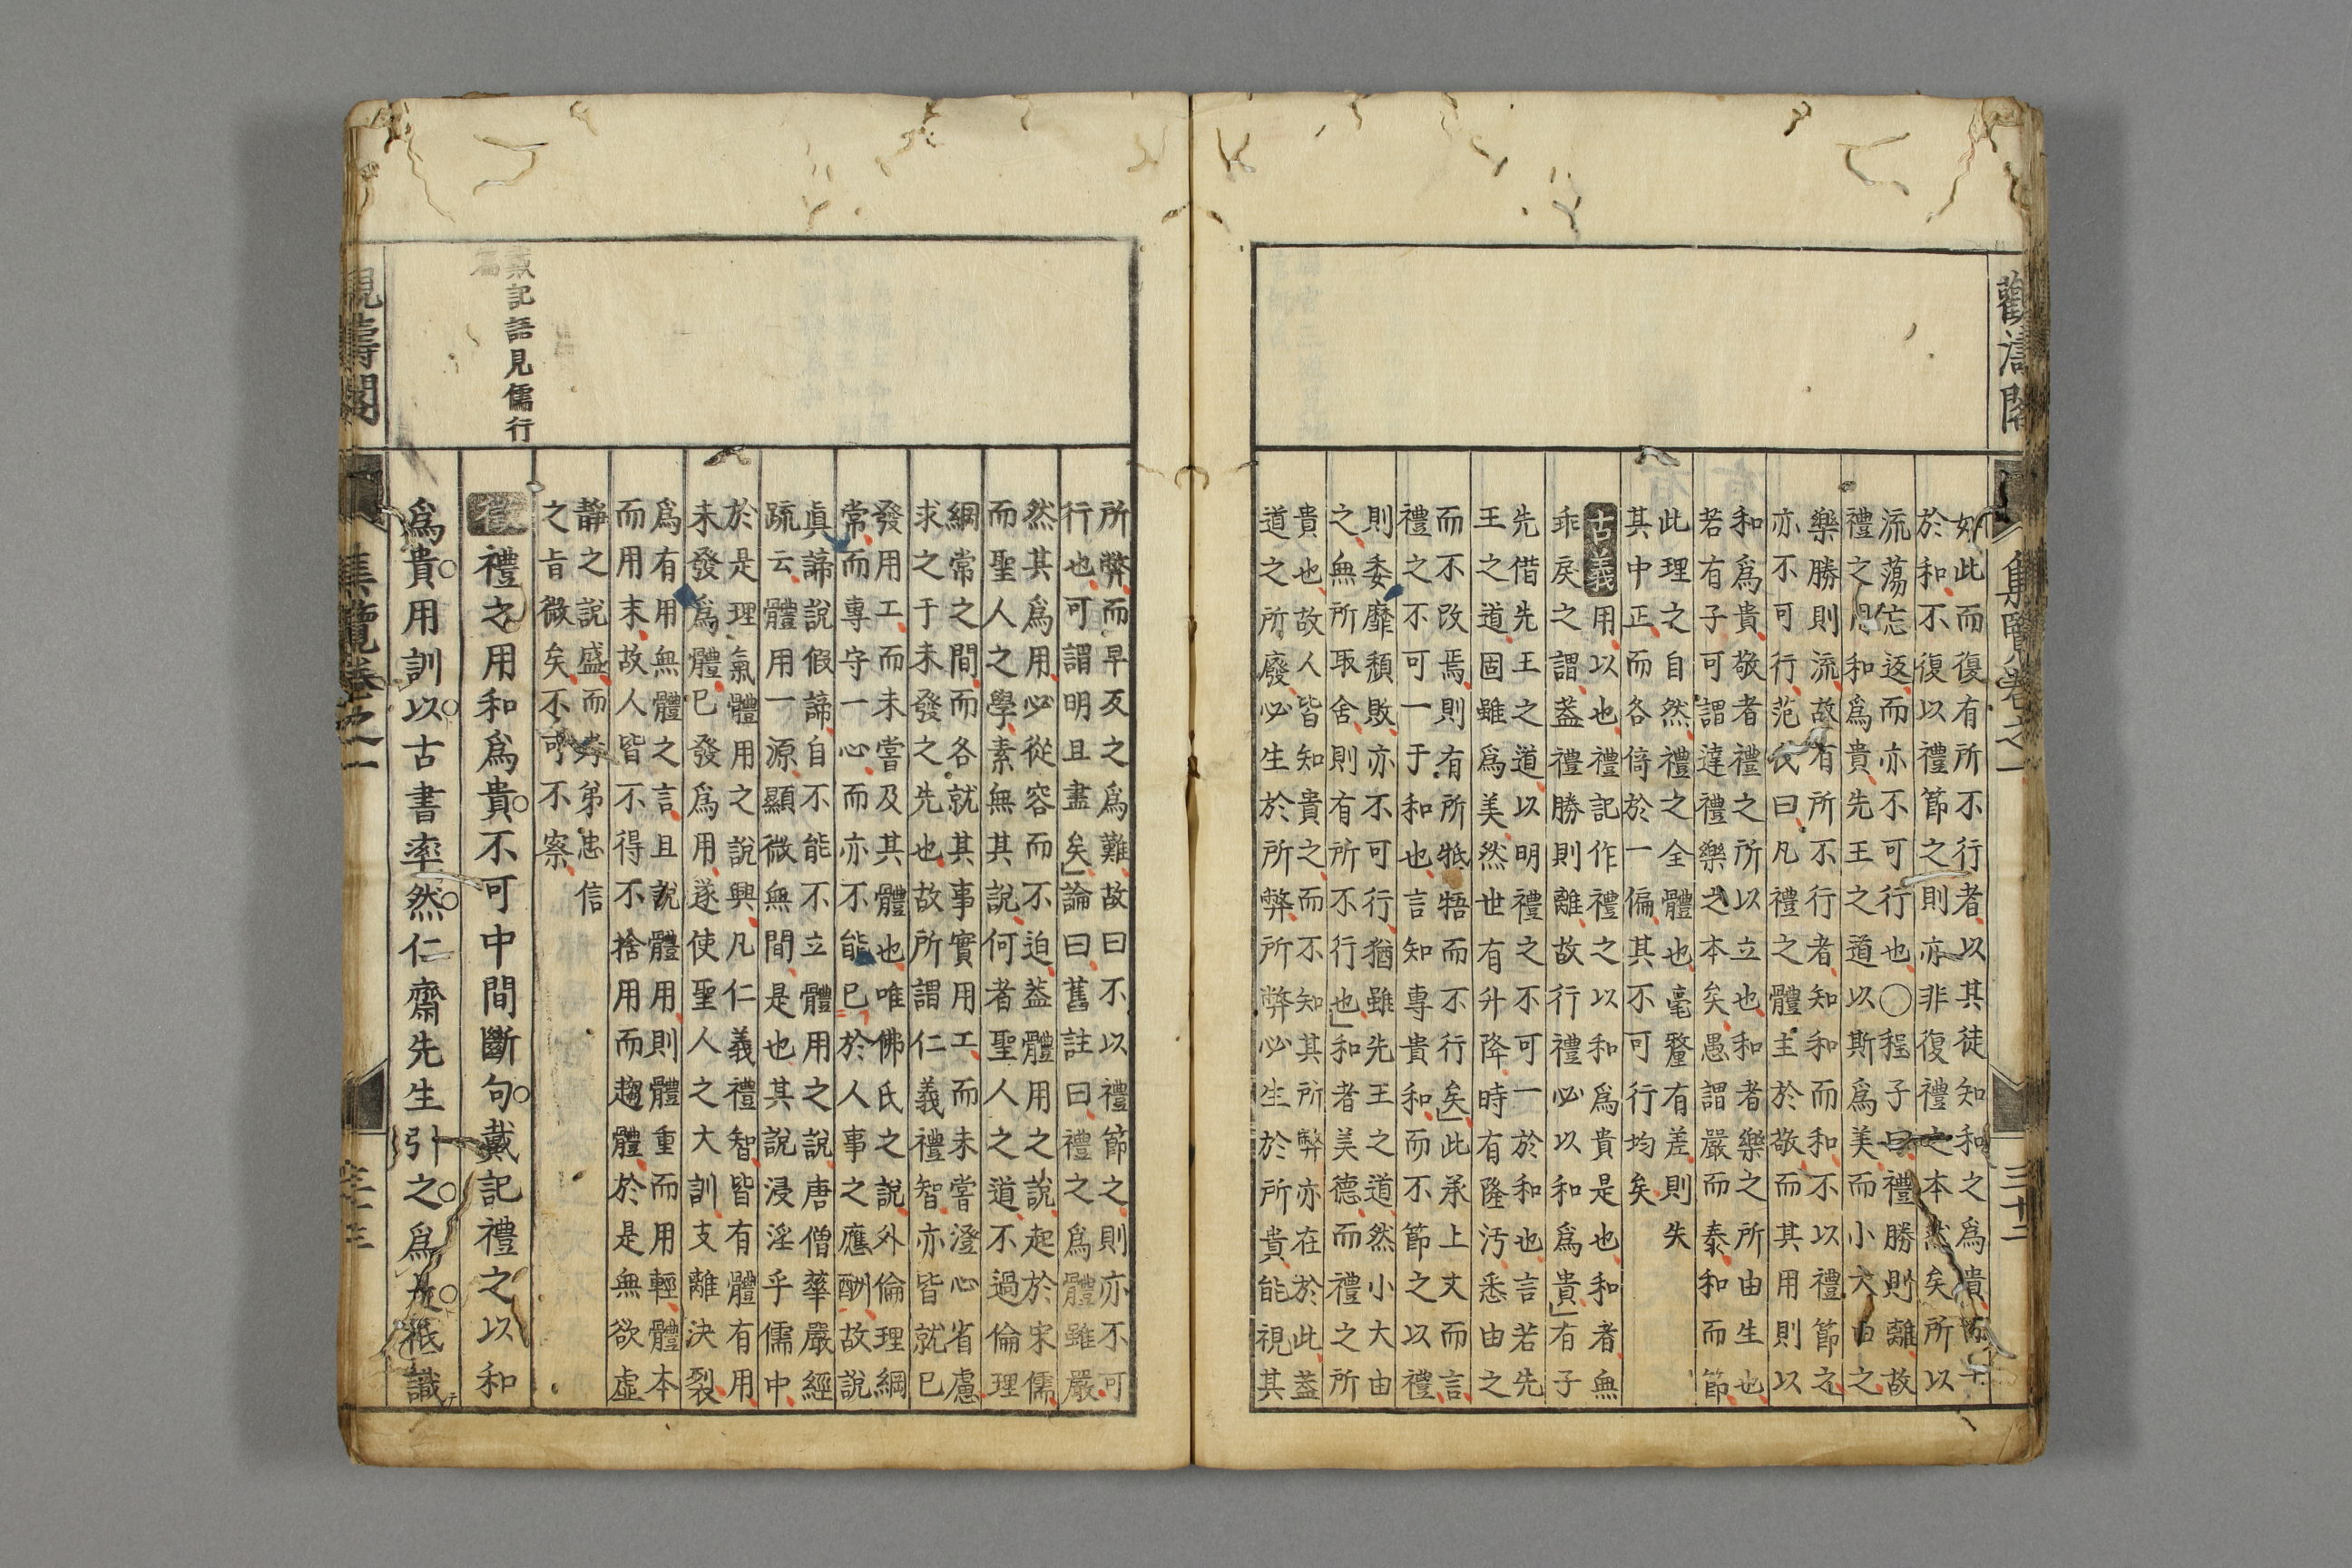 觀濤閣
集覽卷之一
三十二
如此而復有所不行者以其徒知和之爲貴而一
於和不復以禮節之則亦非復禮之本然矣所以
流蕩忘返而亦不可行也○程子曰禮勝則離故
禮之用和爲貴先王之道以斯爲美而小大由之
樂勝則流故有所不行者知和而和不以禮節之
亦不可行范氏曰凡禮之體主於敬而其用則以
和爲貴敬者禮之所以立也和者樂之所由生也
若有子可謂達禮樂之本矣愚謂嚴而泰和而節
此理之自然禮之全體也毫釐有差則失
其中正而各倚於一偏其不可行均矣
古義用以也禮記作禮之以和爲貴是也和者無
乖戾之謂葢禮勝則離故行禮必以和爲貴有子
先僣先王之道以明禮之不可一於和也言若先
王之道固雖爲美然世有升降時有隆汚悉由之
而不改焉則有所牴牾而不行矣此承上文而言
禮之不可一于和也言知專貴和而不節之以禮
則委靡頹敗亦不可行猶雖先王之道然小大由
之無所取舍則有所不行也和者美德而禮之所
貴也故人皆知貴之而不知其所弊亦在於此葢
道之所廢必生於所弊所弊必生於所貴能視其
所弊而早反之爲難故曰不以禮節之則亦不可
行也可謂明且盡矣論曰舊註曰禮之爲體雖嚴
然其爲用必從容而不迫葢體用之說起於宋儒
而聖人之學素無其說何者聖人之道不過倫理
綱常之間而各就其事實用工而未嘗澄心省慮
求之于未發之先也故所謂仁義禮智亦皆就已
發用工而未嘗及其體也唯佛氏之說外倫理綱
常而專守一心而亦不能已於人事之應酬故說
眞諦說假諦自不能不立體用之說唐僧華嚴經
疏云體用一源顯微無間是也其說浸淫乎儒中
於是理氣體用之說興凡仁義禮智皆有體有用
未發爲體已發爲用遂使聖人之大訓支離決裂
爲有用無體之言且說體用則體重而用輕體本
而用末故人皆不得不捨用而趨體於是無欲虛
靜之說盛而孝弟忠信
之旨微矣不可不察
戴記語見儒行
篇
徵禮之用和爲貴不可中間斷句戴記禮之以和
爲貴用訓以古書率然仁齋先生引之爲是秖識
觀濤閣
集覽卷之一